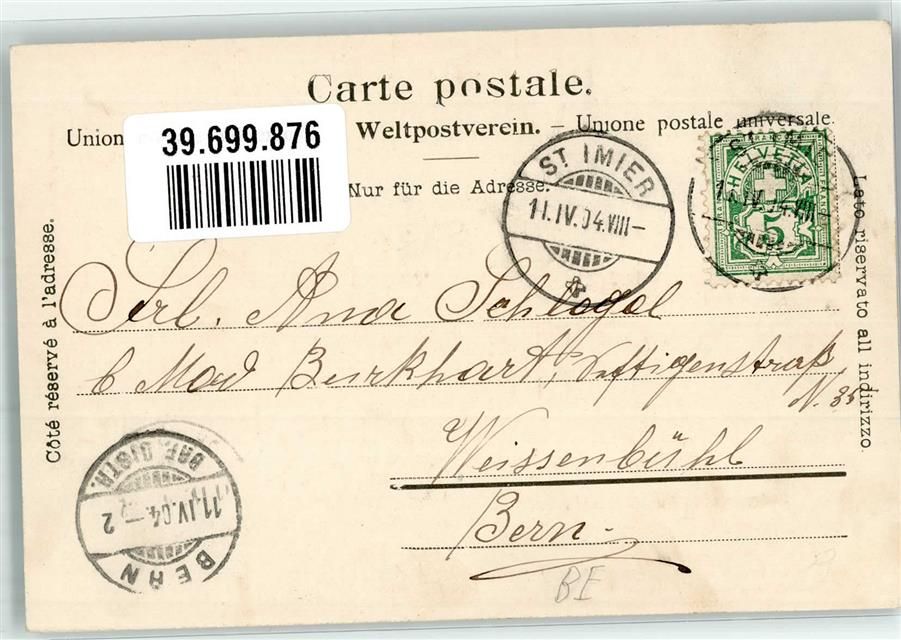 Carte postale.
Union Weltpostverein. – Unione postale universale.
39.699.876
Nur für die Adresse.
ST IMIER
11.IV.04.VIII–
HELVETIA
11.IV.04.VIII
5
Côté réservé à l'adresse.
Lato riservato all indirizzo.
Frl. Anna Schlögel
b Mad Burkhart, Weftigenstraß
N. 35
Weissenbühl
Bern.
BERN
11.IV.04.– 2
BRF. DISTR.
BE